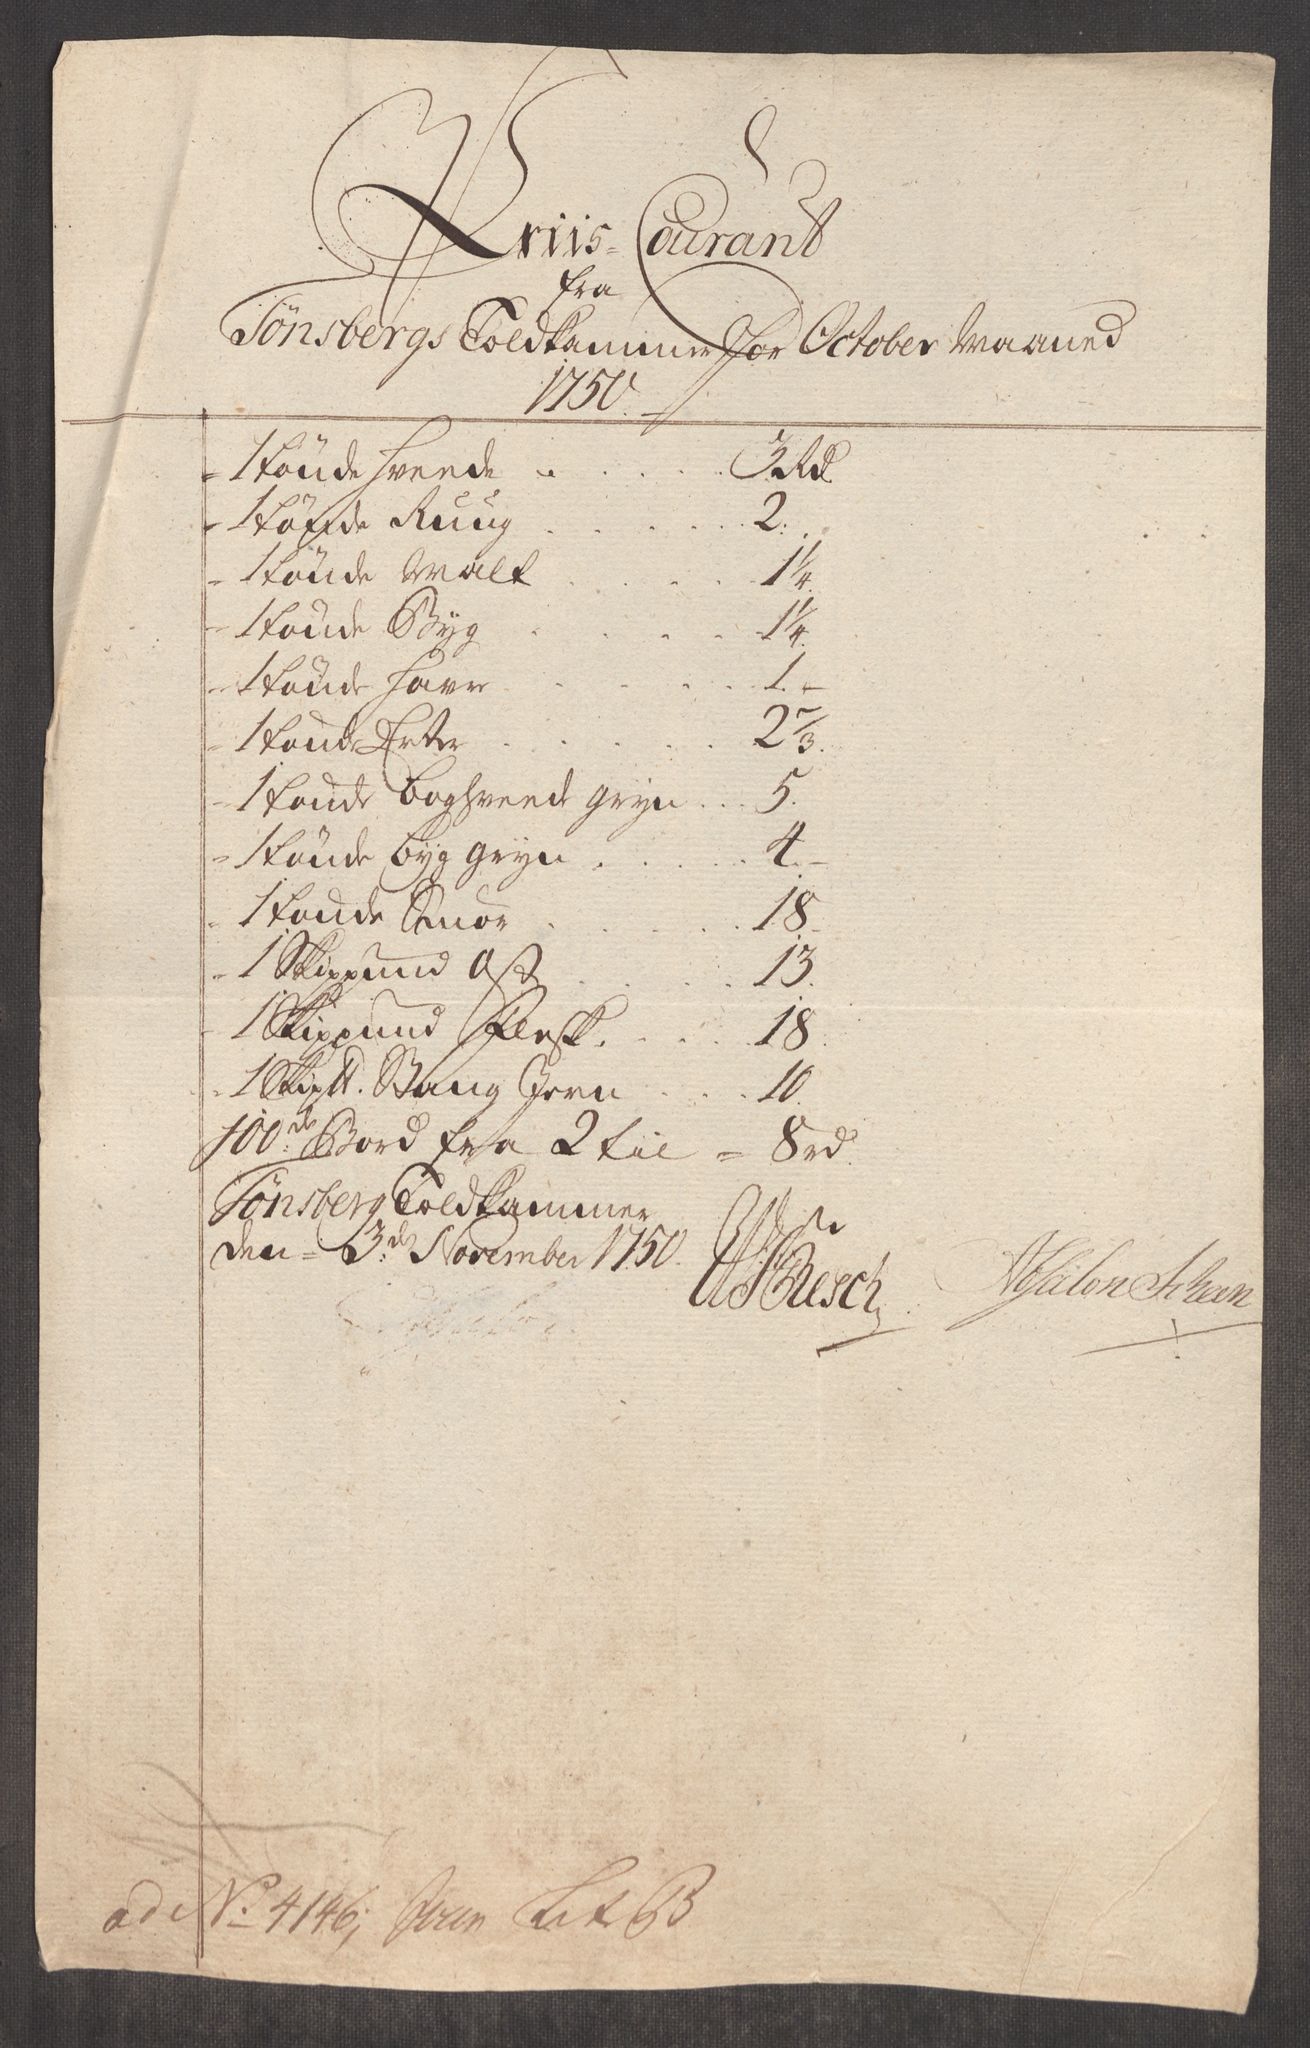 Priis-Courant
fra
Tönsbergs Toldkammer for October Maaned
1750.
- 1 tönde Hveede . . . . . 3 Rd
- 1 tönde Ruug . . . . . 2.
- 1 tönde Malt . . . . 1 1/4.
- 1 tönde Byg . . . . 1 1/4.
- 1 tönde Havre . . . . . 1. -
- 1 tönde Erter . . . . . 2 2/3.
- 1 tönde boghveede gryn . . . 5.
- 1 tönde byg gryn . . . . . 4. -
- 1 tönde Smör . . . . . 18 -
- 1 Skippund Ost . . . . 13.
- 1 Skippund Flesk . . . . . 18.
- 1 Skip℔. Stang Jern . . . 10.
100de Bord fra 2 til = 8 rd.
Tönsberg Toldkammer
den = 3de November 1750.
Resch
Absalon
ad No. 4146, Lit B